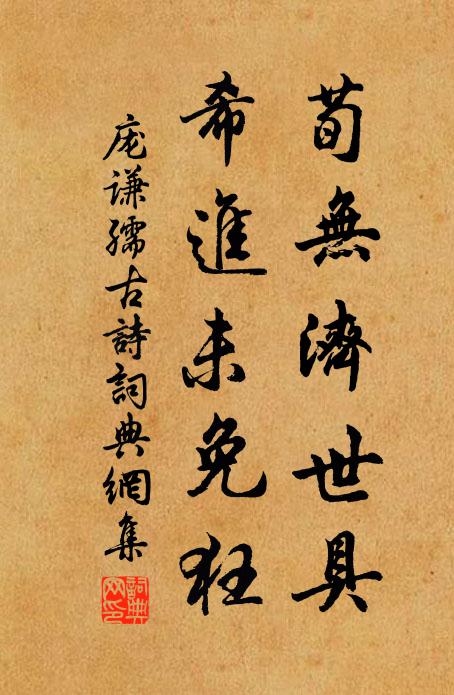 苟無濟世具
希進未免狂
庞谦孺古詩詞典網集
詞典
网印